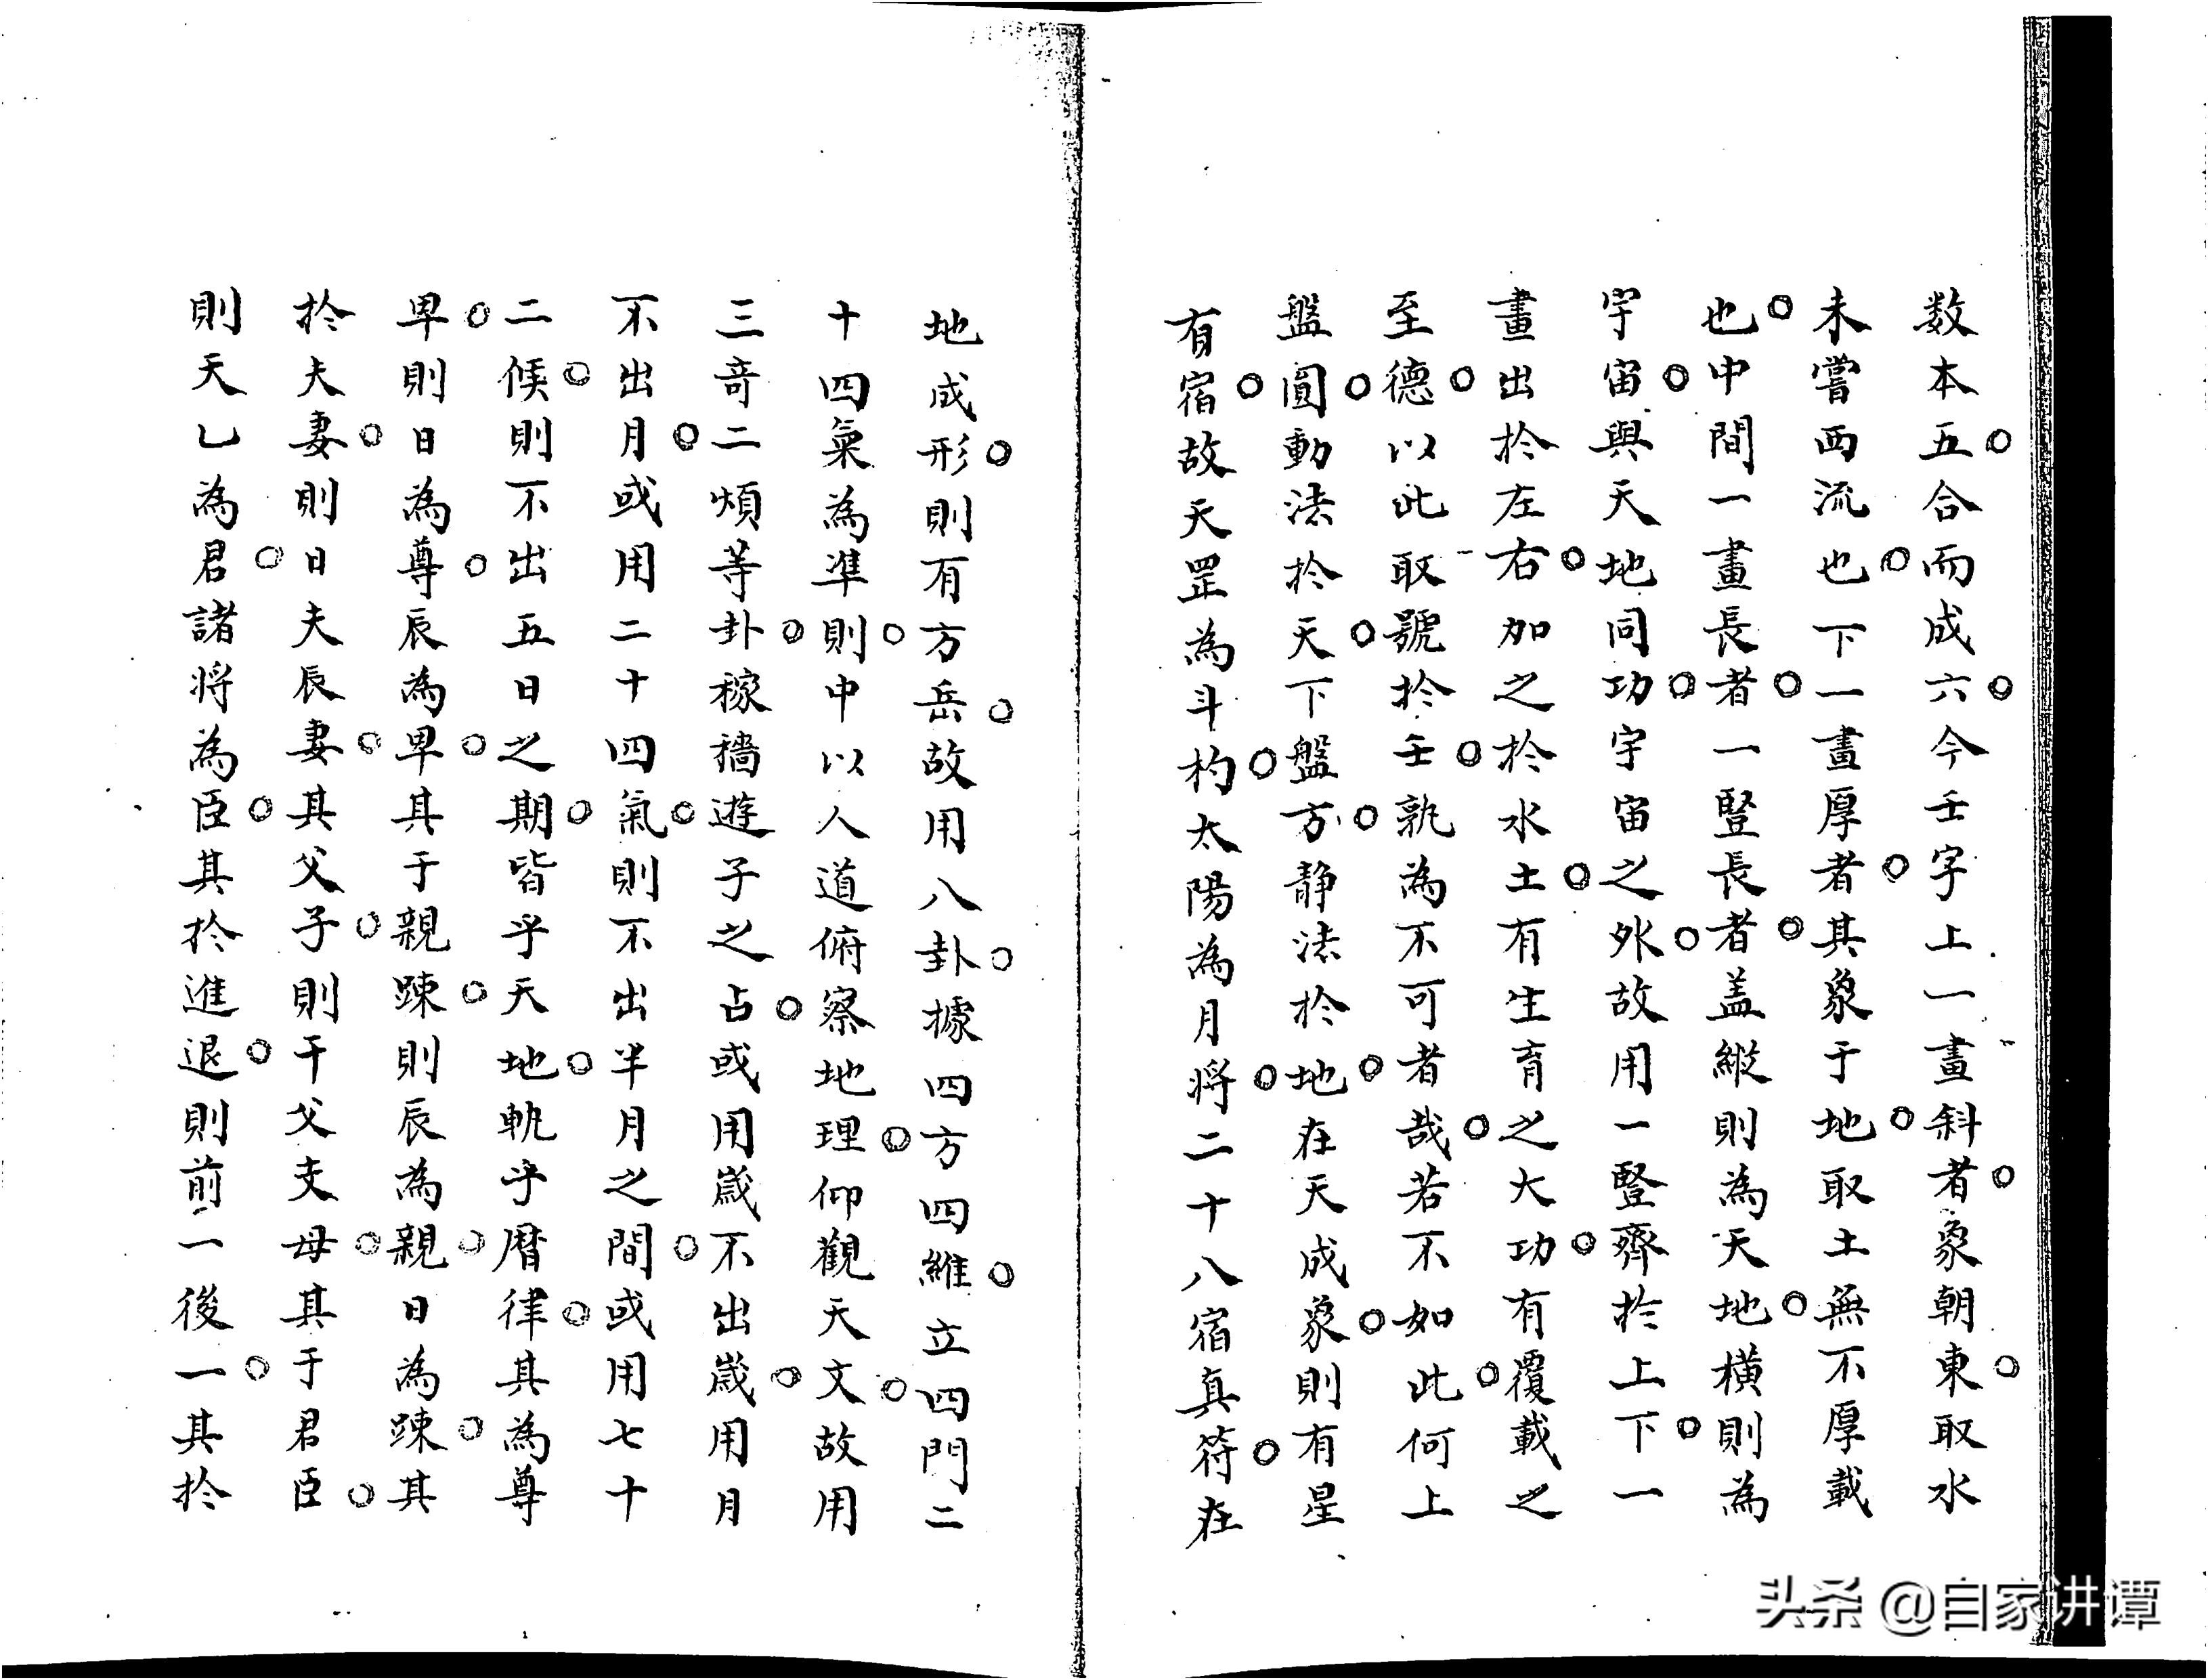 数本五合而成六今壬字上一畫斜者象朝東取水
未嘗西流也下一畫厚者其象于地取土無不厚載
也中間一畫長者一豎長者盖縱則為天地橫則為
宇宙與天地同功宇宙之外故用一豎齊於上下一
畫出於左右加之於水土有生育之大功有覆載之
至德以此取號於壬孰為不可者哉若不如此何上
盤圓動法於天下盤方静法於地在天成象則有星
有宿故天罡為斗杓太陽為月将二十八宿真符在
地成形則有方岳故用八卦據四方四維立四門二
十四氣為準則中以人道俯察地理仰觀天文故用
三竒二煩等卦稼穡遊子之占或用嵗不出嵗用月
不出月或用二十四氣則不出半月之間或用七十
二候則不出五日之期皆乎天地軌乎曆律其為尊
卑則日為尊辰為卑其于親踈則辰為親日為踈其
於夫妻則日夫辰妻其父子則干父支母其于君臣
則天乙為君諸将為臣其於進退則前一後一其於
头条 @自家讲谭